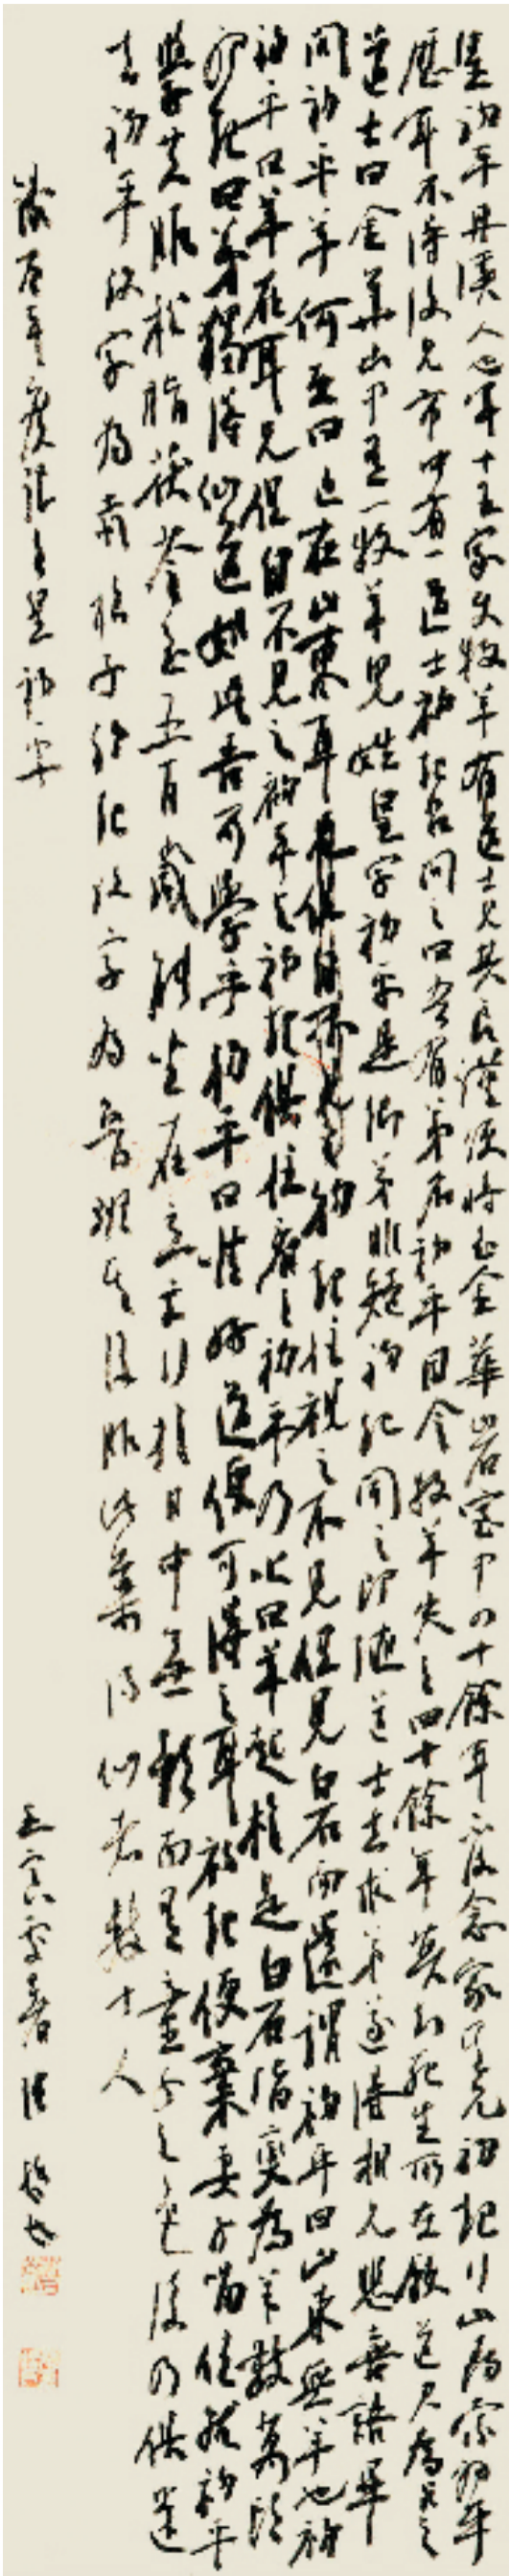 皇初平丹溪人也年十五家使牧羊有道士見其良謹便將至金華岩室中四十餘年不復念家其兄初起行山尋索初平
歷年不得後見市中有一道士初起召問之曰吾有弟名初平因令牧羊失之四十餘年莫知死生所在願道君為占之
道士曰金華山中有一牧羊兒姓皇字初平是卿弟非疑初起聞之即隨道士去求弟遂得相見悲喜語畢
問初平羊何在曰近在山東耳初起往視之不見但見白石而還謂初平曰山東無羊也初
初平曰羊在耳兄但自不見之初平與初起俱往看之初平乃叱曰羊起於是白石皆變為羊數萬頭
初起曰弟獨得仙道如此吾可學乎初平曰惟好道便可得之耳初起便棄妻子留住就初平
學共服松脂茯苓至五百歲能坐在立亡行於日中無影而有童子之色後乃俱還
去初平改字為赤松子初起改字為魯班其後服此藥得仙者數十人
初平